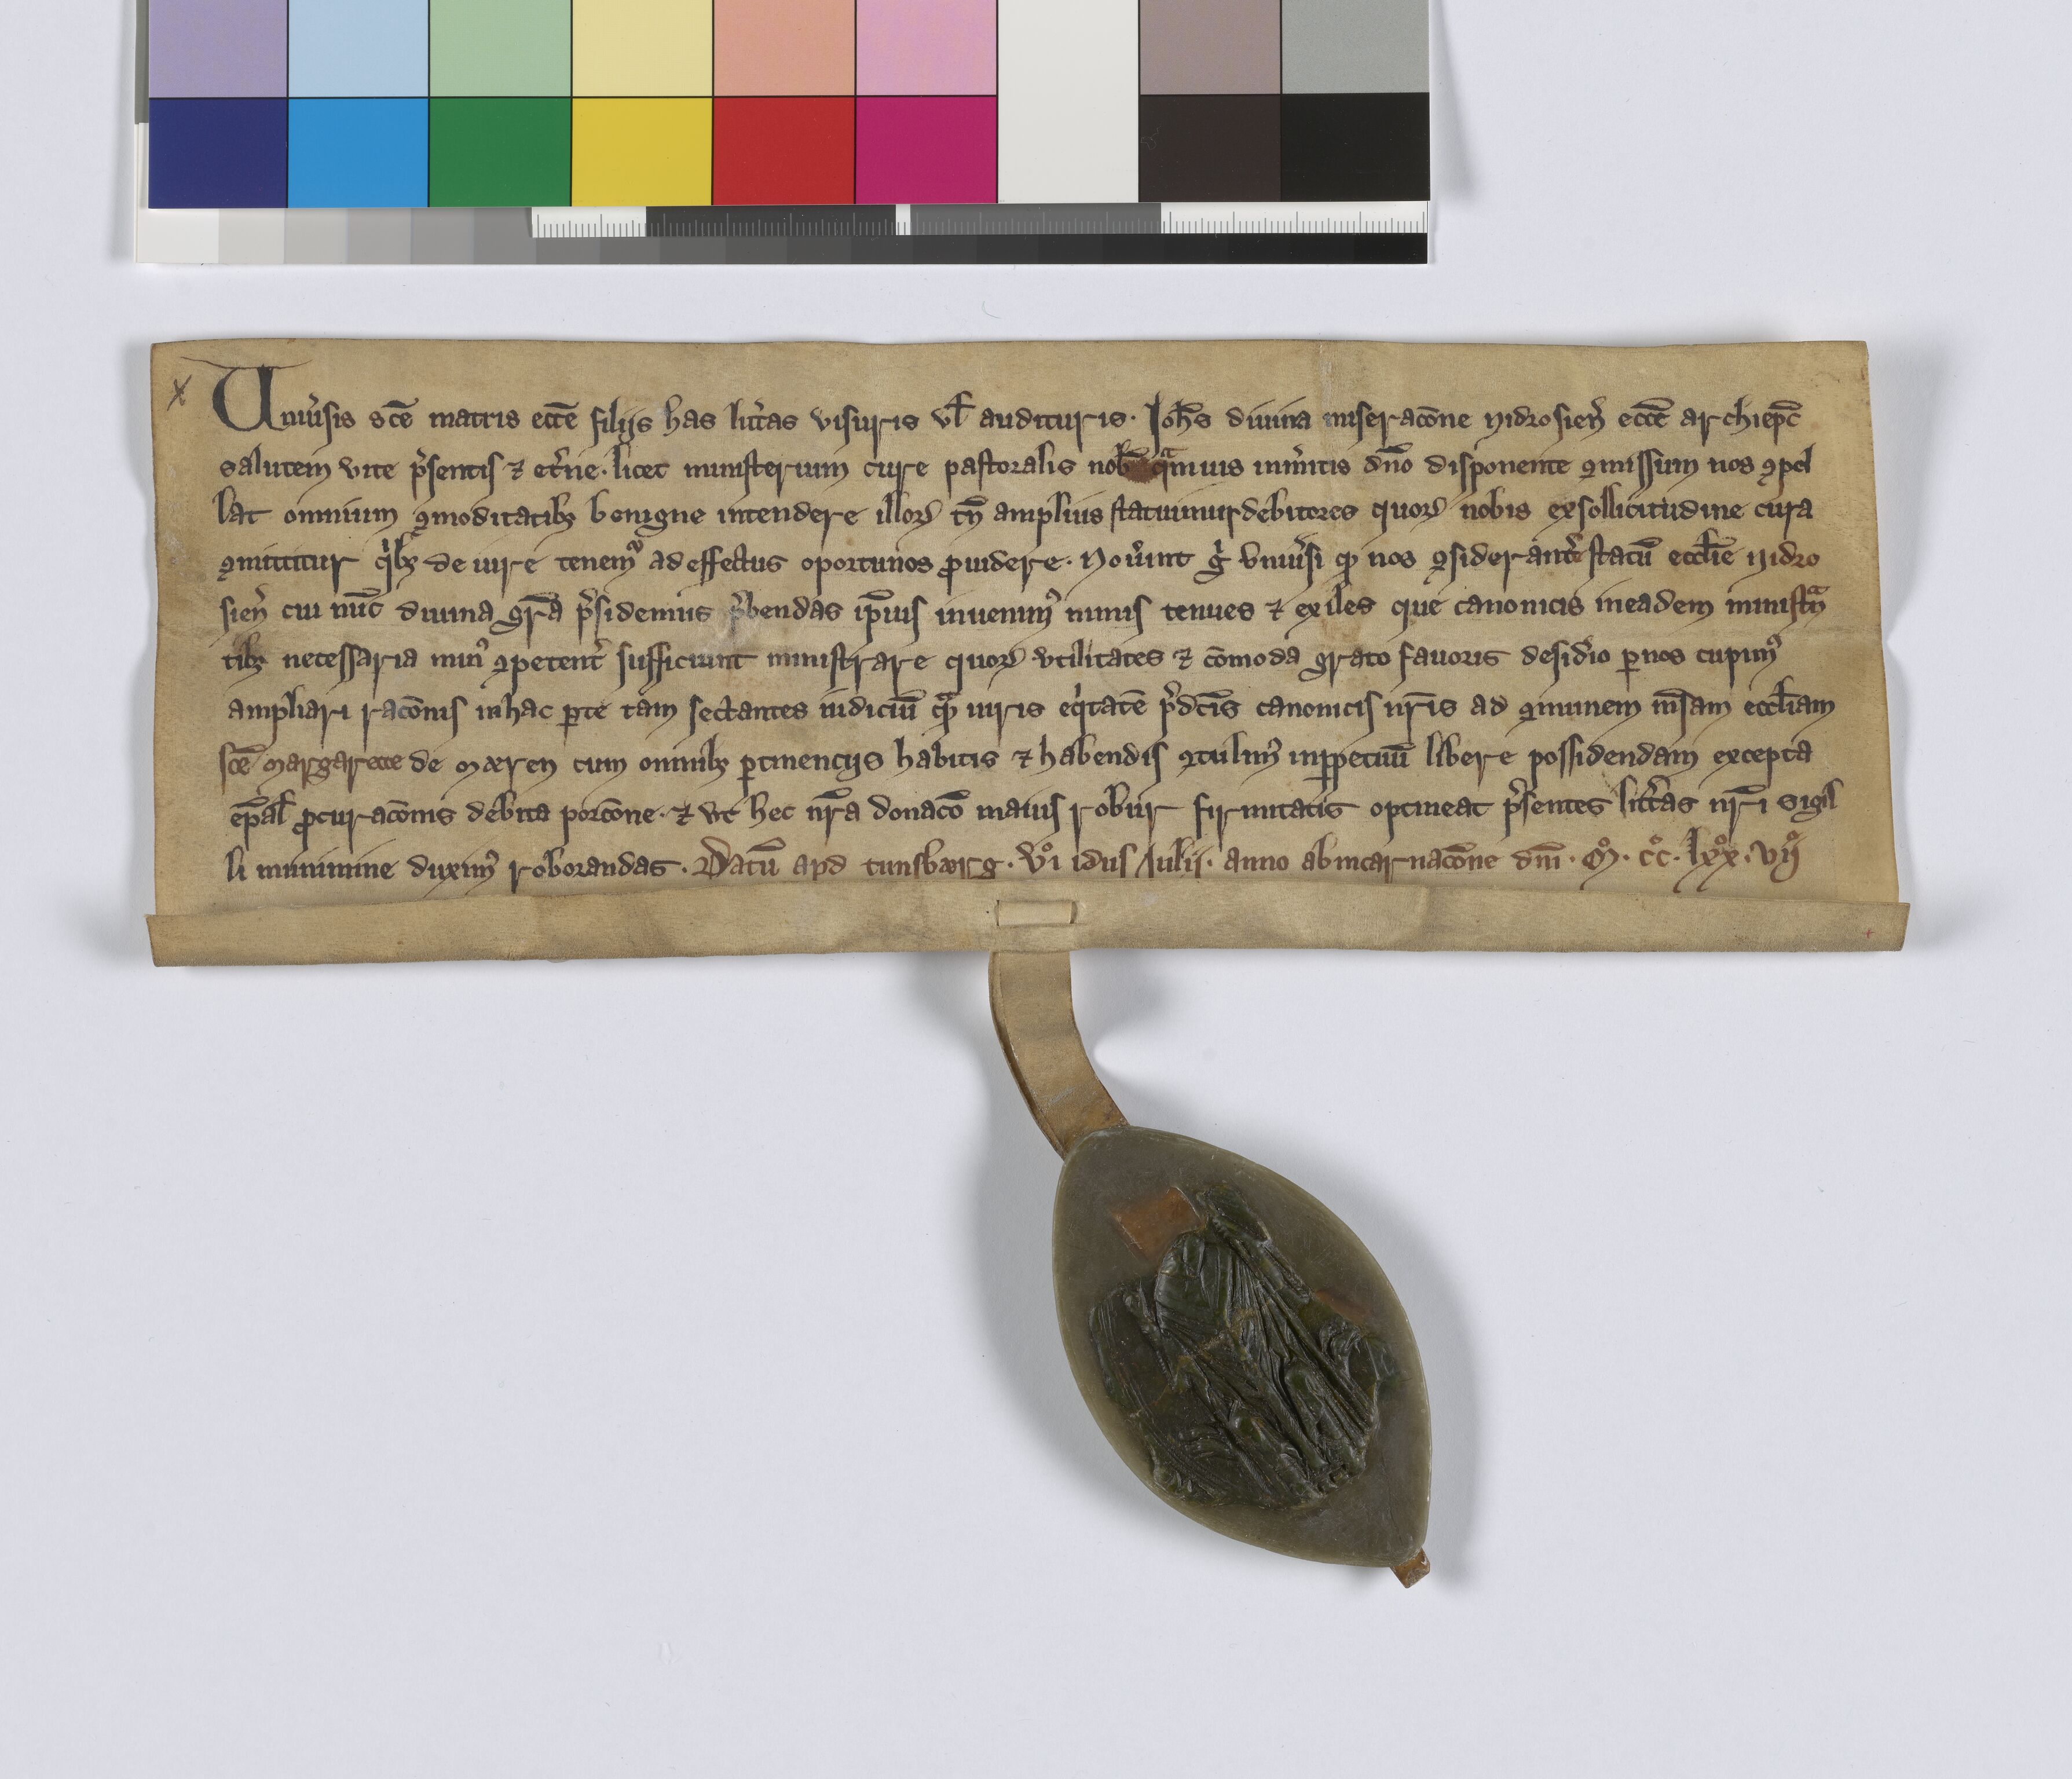 Uniu̾sis sc̄e matris ecc̄e filijs has litt̾as visuris vl̄ audituris. Joh̄s diuina miserac̄one nidrosień ecc̄e archiep̄c
salutem vite p̾sentis ⁊ et̾ne. licet ministerium cure pastoralis nob̄ qͣmuis inm̾itis dn̄o disponente ꝯmissum nos ꝯpel
lat omnium ꝯmoditatibꝫ benigne intendere illoꝝ tn̄ amplius statuimur debitores quoꝝ nobis ex sollicitudine cura
ꝯmittitur qⁱbꝫ de iure tenemᷣ ad effectus oportunos ꝓuidere. Nou̾int gͥ vniu̾si ꝙ nos ꝯsiderant̾ statū eccl̄ie nidro
sień cui nūc diuina gr̄a p̾sidemus p̾bendas ip̄ius inuenimꝰ nimis tenues ⁊ exiles que canonicis in eadem ministᷓn
tibꝫ necessaria minꝰ ꝯpetent̾ sufficiunt ministrare quoꝝ vtilitates ⁊ cōmoda grato fauoris desid̾io ꝑ nos cupimꝰ
ampliari rac̄onis in hac ꝑte tam sectantes iudiciū qͣ iuris eqⁱtatē p̾dc̄is canonicis nr̄is ad ꝯmunem m̄sam eccl̄iam
sc̄e margarete de mæren cum omnibꝫ ꝑtinencijs habitis ⁊ habendis ꝯtulimꝰ inꝑpetuū libere possidendam excepta
ep̄al̄ ꝓcurac̄onis debita porc̄one. ⁊ vt hec nr̄a donac̄o maius robur firmitatis optineat p̾sentes litt̾as nr̄i sigil
li munimine duximꝰ roborandas. Datū apd tunsbærg. vͦi idus Julij. anno ab incarnac̄one dn̄i. Mͦ. cͦc. lxͦx. vij̊